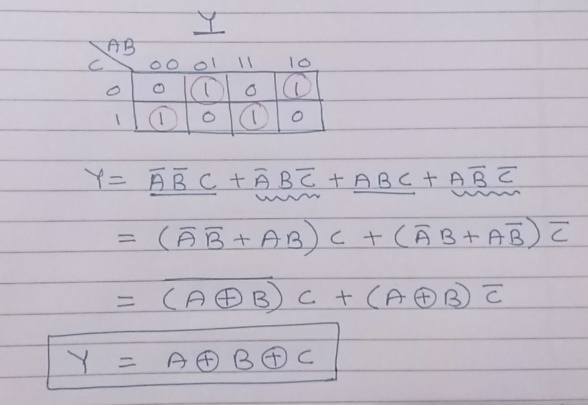 Y
AB
C 00 01 11 10
0 0 1 0 1
1 1 0 1 0
Y = A̅ B̅ C + A̅ B C̅ + A B C + A B̅ C̅
= (A̅ B̅ + A B) C + (A̅ B + A B̅) C̅
= (A̅ ̅⊕̅ ̅B̅) C + (A ⊕ B) C̅
Y = A ⊕ B ⊕ C